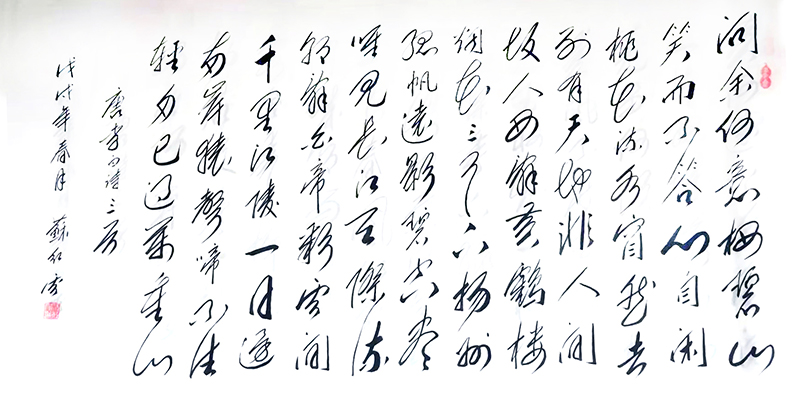 问余何意栖碧山
笑而不答心自闲
桃花流水窅然去
别有天地非人间
故人西辞黄鹤楼
烟花三月下扬州
孤帆远影碧空尽
唯见长江天际流
朝辞白帝彩云间
千里江陵一日还
两岸猿声啼不住
轻舟已过万重山
唐李白诗三首
戊戌年春月 蘇红